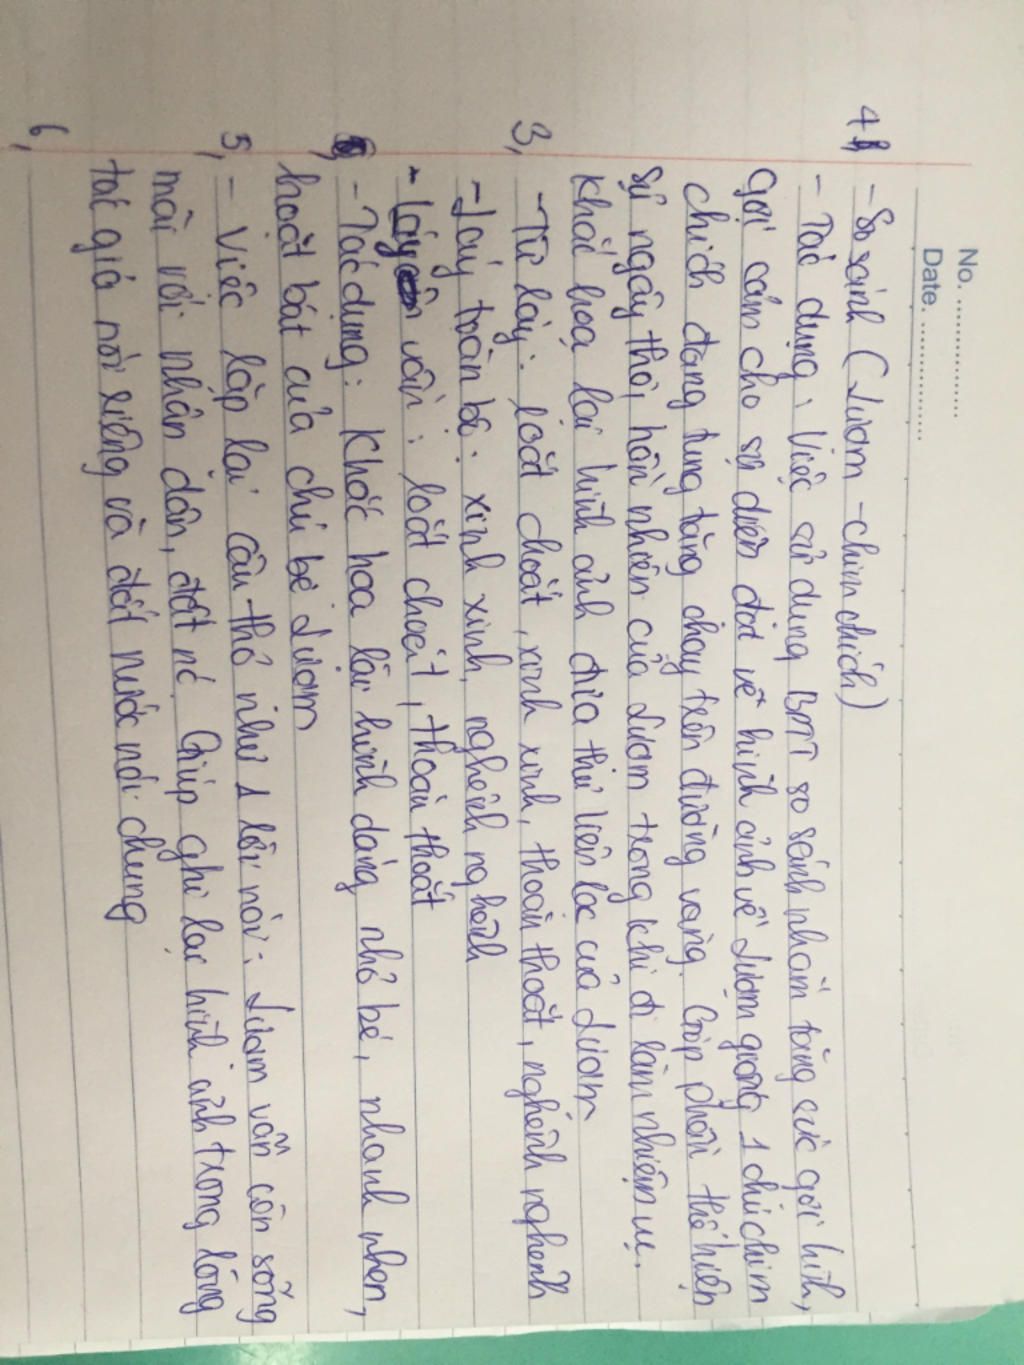 No. ................
Date. ................
4, - So sánh (Lượm - chim chích)
- Tác dụng: Việc sử dụng BPTT so sánh nhằm tăng sức gợi hình,
gợi cảm cho sự diễn đạt về hình ảnh về Lượm giống 1 chú chim
chích đang tung tăng chạy trên đường vàng. Góp phần thể hiện
sự ngây thơ, hồn nhiên của Lượm trong khi đi làm nhiệm vụ.
Khắc hoạ lại hình ảnh đứa thư liên lạc của Lượm
3, - Từ láy: loắt choắt, xinh xinh, thoăn thoắt, nghênh nghênh
- Láy toàn bộ: xinh xinh, nghênh nghênh
- Láy vần: loắt choắt, thoăn thoắt
- Tác dụng: Khắc hoạ lại hình dáng nhỏ bé, nhanh nhẹn,
hoạt bát của chú bé Lượm
5, - Việc lặp lại câu thơ như 1 lời nói: Lượm vẫn còn sống
mãi với nhân dân, đất nc. Giúp ghi lại hình ảnh trong lòng
tác giả nói riêng và đất nước nói chung
6,